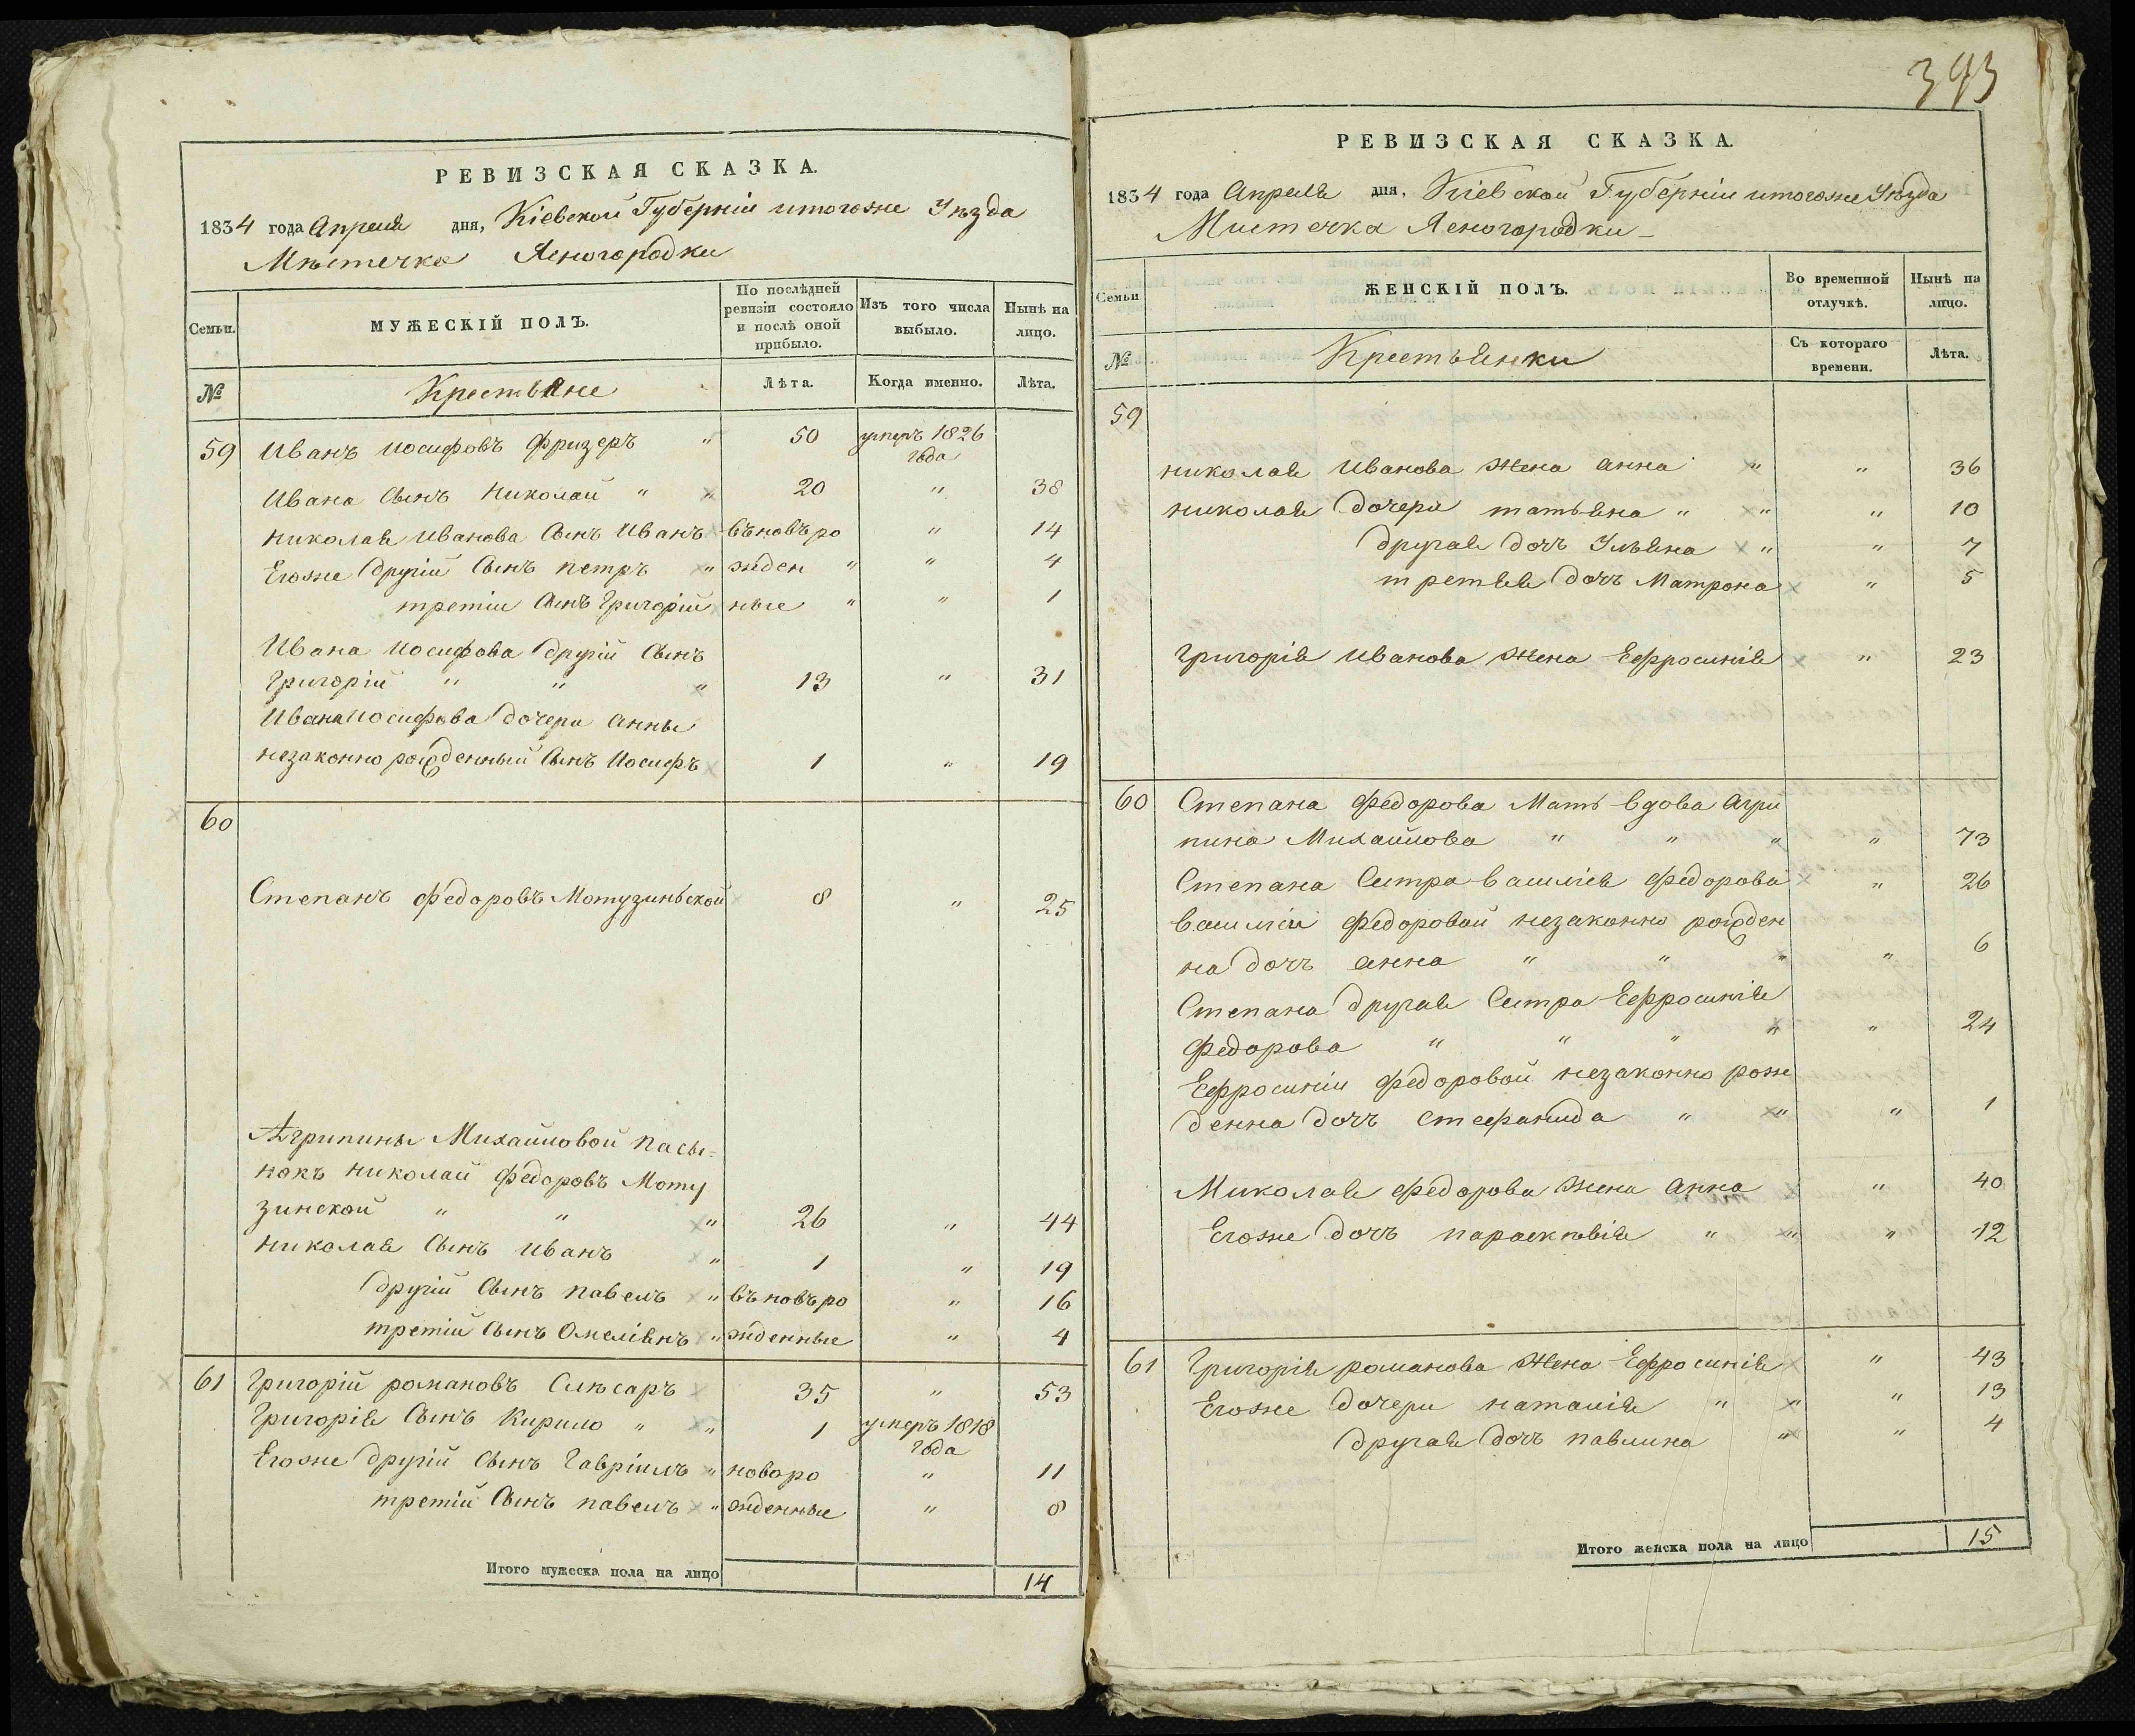 РЕВИЗСКАЯ СКАЗКА.
1834 года Апреля дня, Кіевской Губерніи итогоже Уѣзда
Мѣстечка Ясногородки
Семьи.
МУЖЕСКІЙ ПОЛЪ.
По послѣдней
ревизіи состояло
и послѣ оной
прибыло.
Изъ того числа
выбыло.
Нынѣ на
лицо.
№
Крестьяне
Лѣта.
Когда именно.
Лѣта.
59 Иванъ Иосифовъ Фризеръ " 50 умеръ 1826
года
Ивана Сынъ Николай " " 20 " 38
Николая Иванова Сынъ Иванъ въновъро " 14
Егоже другій Сынъ Петръ " жден " " 4
третіи Сынъ Григорій ные " " 1
Ивана Иосифова другій Сынъ
Григорій " " " 13 " 31
Ивана Иосифова дочери Анны
незаконно рожденный Сынъ Иосифъ 1 " 19
60
Степанъ Федоровъ Мотузиньской 8 " 25
Агрипины Михайловой пасы=
нокъ Николай Федоровъ Моту
зинской " " " 26 " 44
Николая Сынъ Иванъ " 1 " 19
другій Сынъ Павелъ " въновъро " 16
третій Сынъ Омеліянъ " жденные " 4
61 Григорій Романовъ Слѣсаръ 35 " 53
Григорія Сынъ Кирило " " 1 умеръ 1818
года
Егоже другій Сынъ Гавріилъ " новоро " 11
третій Сынъ Павелъ " жденные " 8
Итого мужеска пола на лицо 14
393
РЕВИЗСКАЯ СКАЗКА.
1834 года Апреля дня, Кіевской Губерніи итогоже Уѣзда
Мистечка Ясногородки
Семьи
ЖЕНСКІЙ ПОЛЪ.
Во временной
отлучкѣ.
Нынѣ на
лицо.
№
Крестьянки
Съ котораго
времени.
Лѣта.
59
Николая Иванова Жена Анна " " 36
Николая дочери татьяна " " " 10
другая дочь Ульяна " " 7
третяя дочь Матрона " 5
Григорія Иванова Жена Ефросинія " 23
60 Степана Федорова Мать вдова Агри
пина Михайлова " " " " 73
Степана Сестра Василія Федорова " 26
Василіи Федоровой незаконно рожден
на дочь Анна " " " " 6
Степана другая Сестра Ефросинія
Федорова " " " " " 24
Ефросиніи Федоровой незаконно рож
денна дочь Стефанида " " " 1
Миколая Федорова Жена Анна " 40
Егоже дочь Параскѣвія " " " 12
61 Григорія Романова Жена Ефросинія " 43
Егоже дочери Наталія " " " 13
другая дочь Павлина " " 4
Итого женска пола на лицо 15